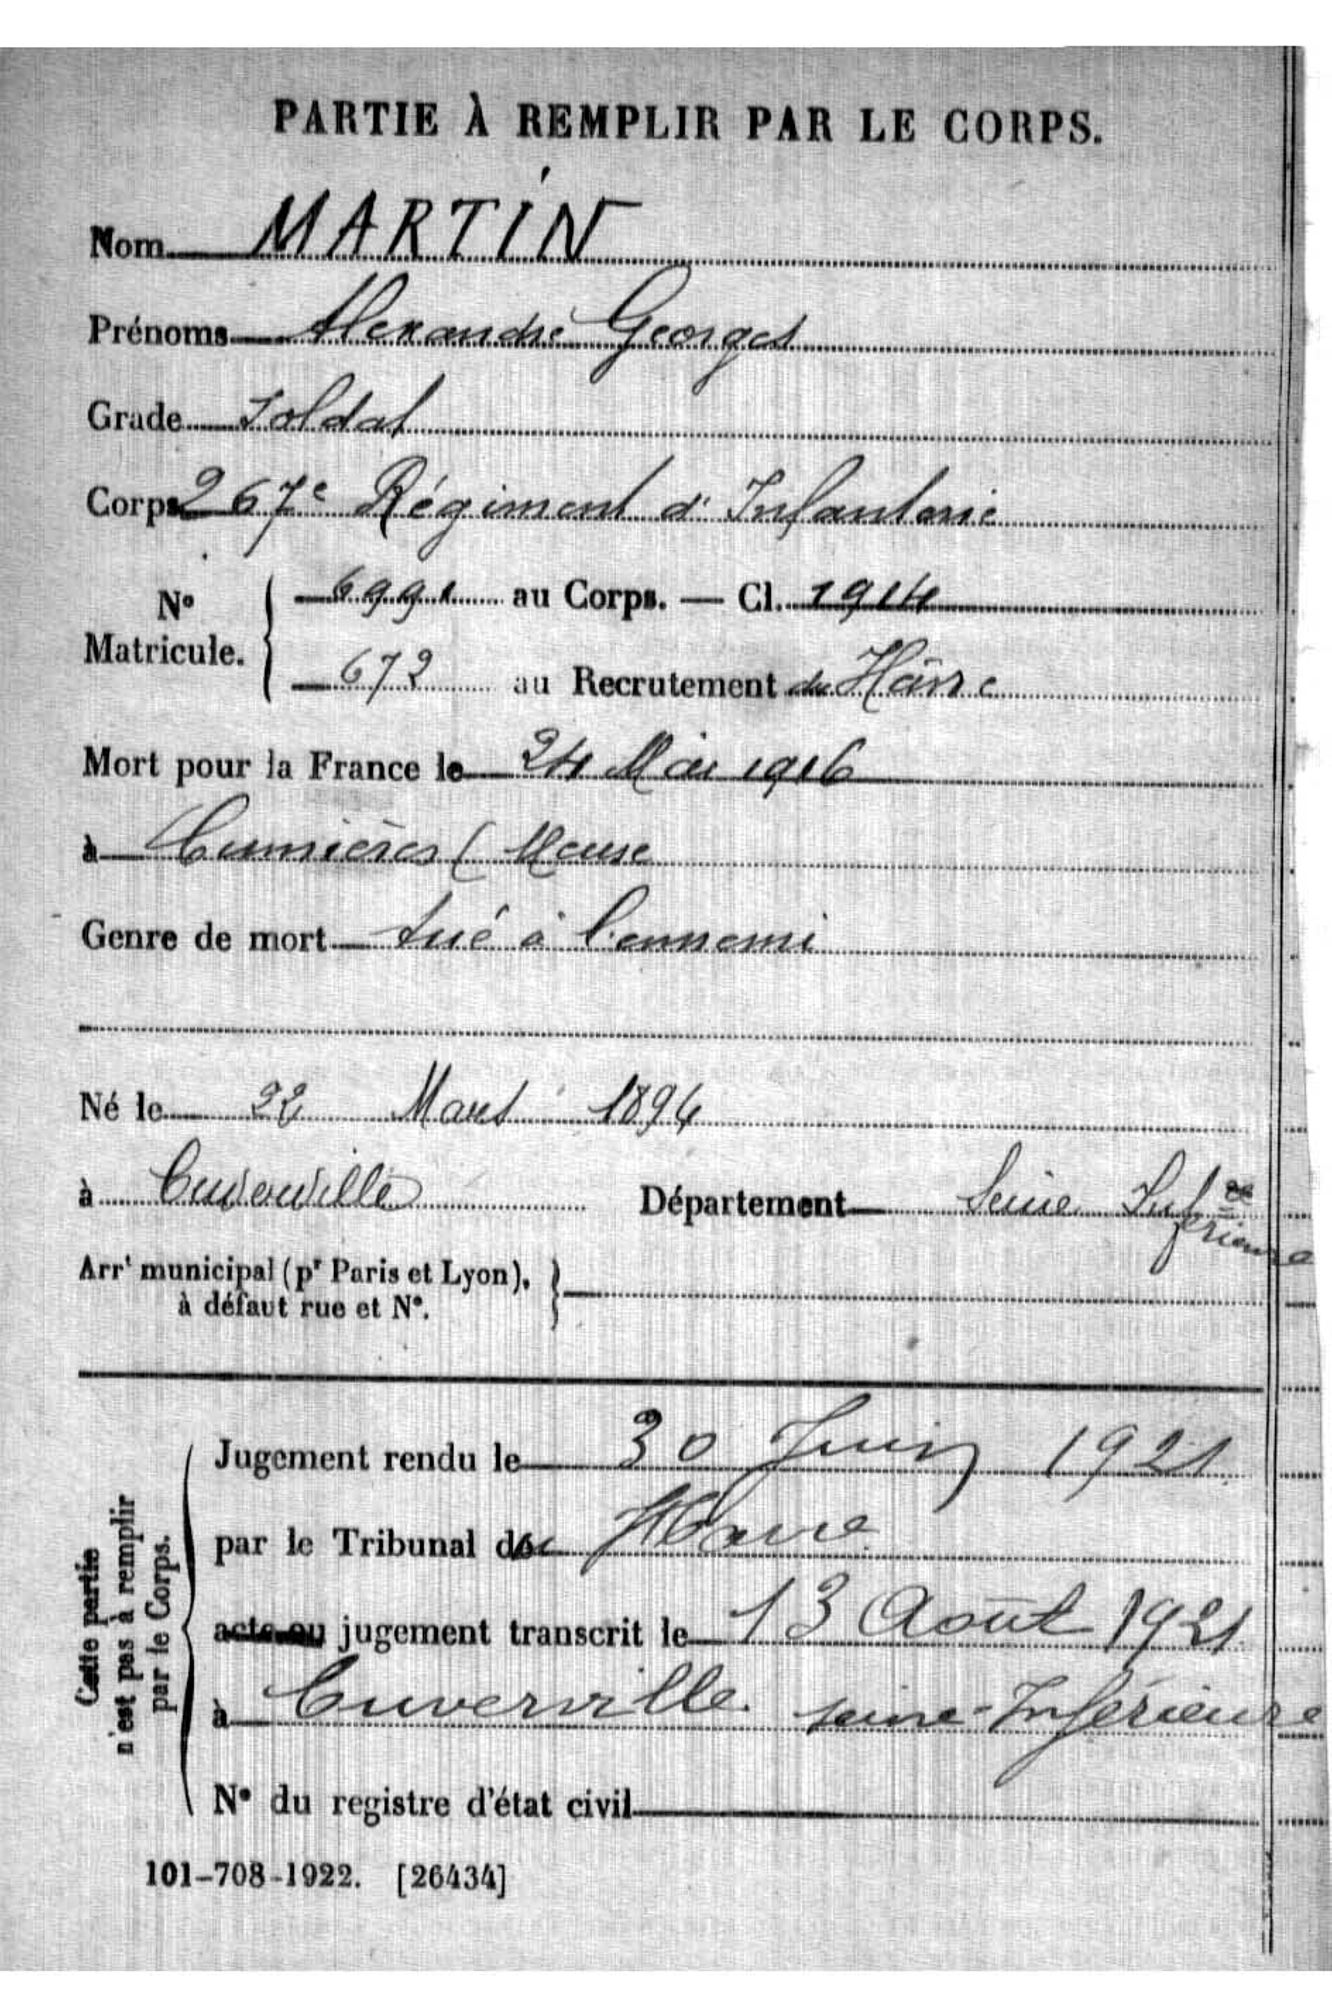 PARTIE À REMPLIR PAR LE CORPS.
Nom MARTIN
Prénoms Alexandre Georges
Grade Soldat
Corps 267e Régiment d'Infanterie
N° Matricule. 6991 au Corps. — Cl. 1914
672 au Recrutement du Hâvre
Mort pour la France le 24 Mai 1916
à Cumières (Meuse
Genre de mort tué à l'ennemi
Né le 22 Mars 1894
à Cuverville Département Seine Inférieure
Arrt municipal (pr Paris et Lyon),
à défaut rue et N°.
Cette partie
n'est pas à remplir
par le Corps.
Jugement rendu le 30 Juin 1921
par le Tribunal du Havre
acte ou jugement transcrit le 13 Août 1921
à Cuverville Seine-Inférieure
N° du registre d'état civil
101-708-1922. [26434]